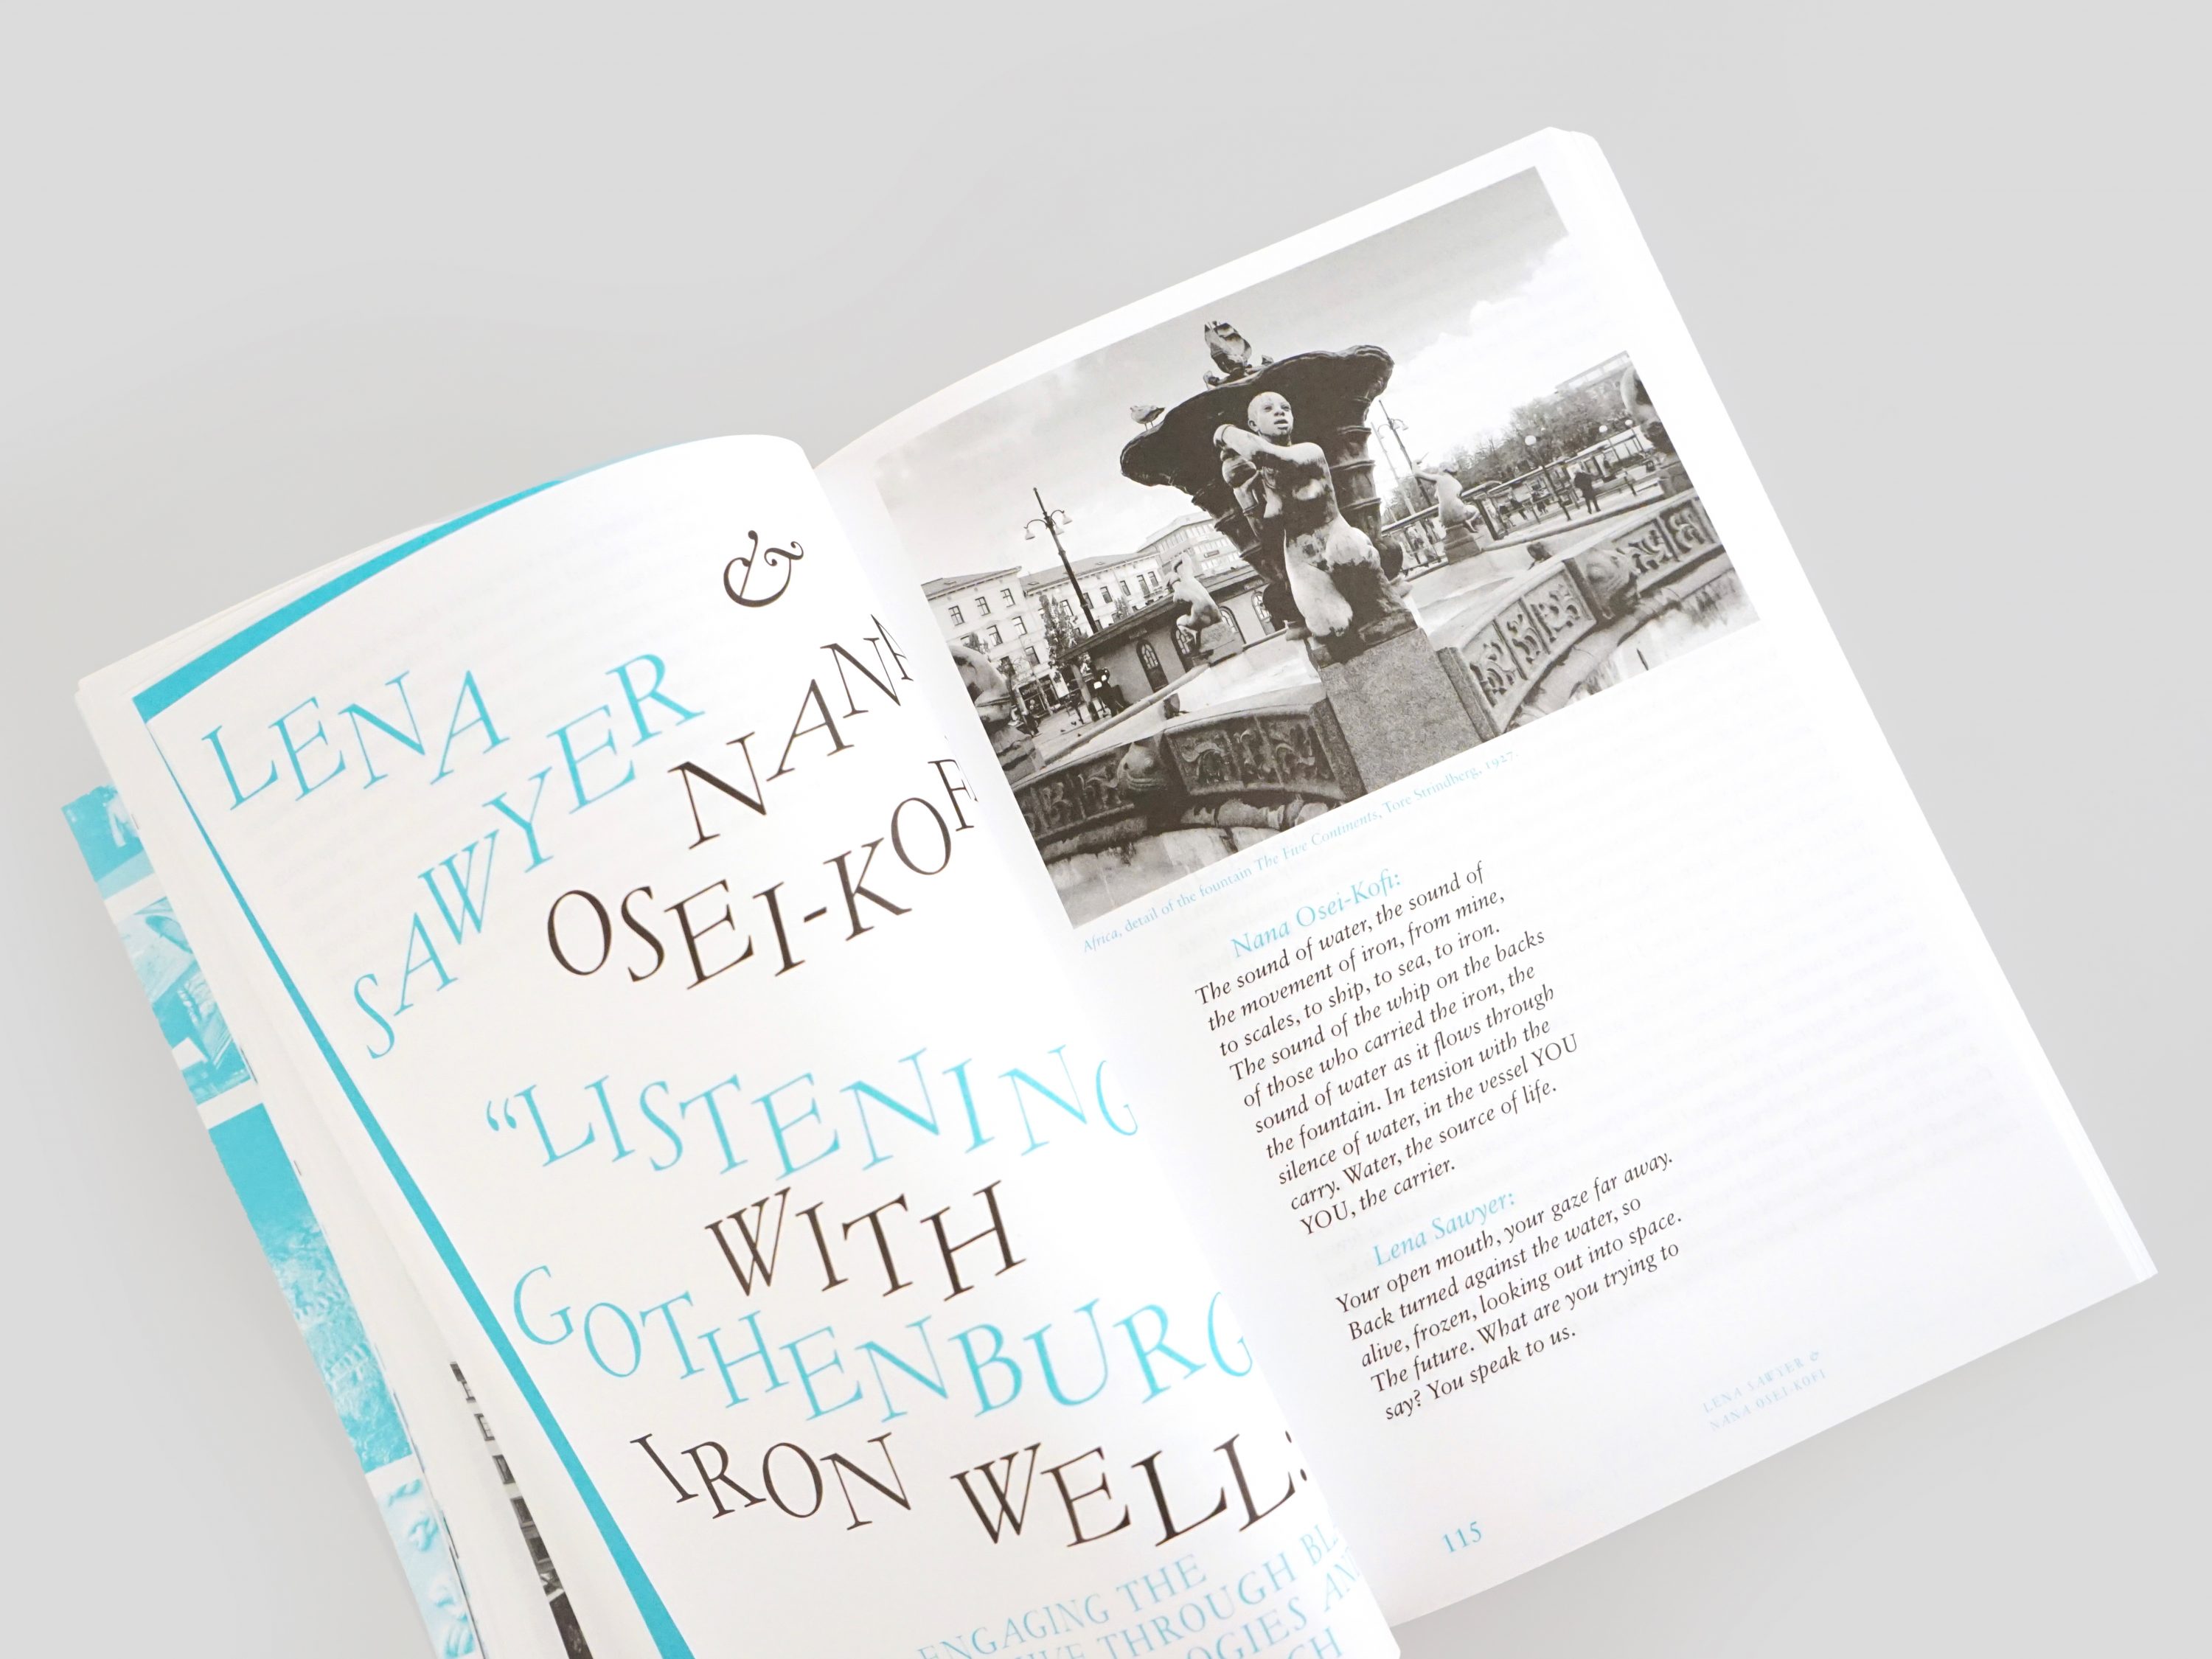 &
LENA
SAWYER
NANA
OSEI-KOF
“LISTENING
WITH
GOTHENBURG
IRON WELLS
ENGAGING THE
THROUGH
Africa, detail of the fountain The Five Continents, Tore Strindberg, 1927.
Nana Osei-Kofi:
The sound of water, the sound of
the movement of iron, from mine,
to scales, to ship, to sea, to iron.
The sound of the whip on the backs
of those who carried the iron, the
sound of water as it flows through
the fountain. In tension with the
silence of water, in the vessel YOU
carry. Water, the source of life.
YOU, the carrier.
Lena Sawyer:
Your open mouth, your gaze far away.
Back turned against the water, so
alive, frozen, looking out into space.
The future. What are you trying to
say? You speak to us.
LENA SAWYER &
NANA OSEI-KOFI
115